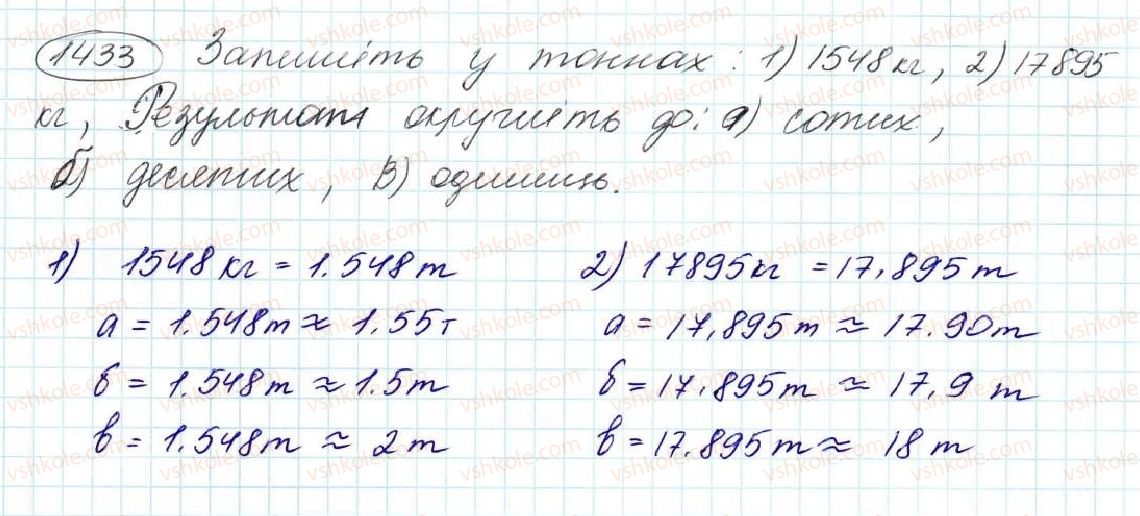 1433 Запишіть у тоннах: 1) 1548 кг, 2) 17895
кг, Результати округліть до: а) сотих,
б) десятих, в) одиниць.
1) 1548 кг = 1.548 т
а = 1.548 т ≈ 1.55 т
б = 1.548 т ≈ 1.5 т
в = 1.548 т ≈ 2 т
2) 17895 кг = 17,895 т
а = 17,895 т ≈ 17.90 т
б = 17,895 т ≈ 17,9 т
в = 17.895 т ≈ 18 т
vshkole.com